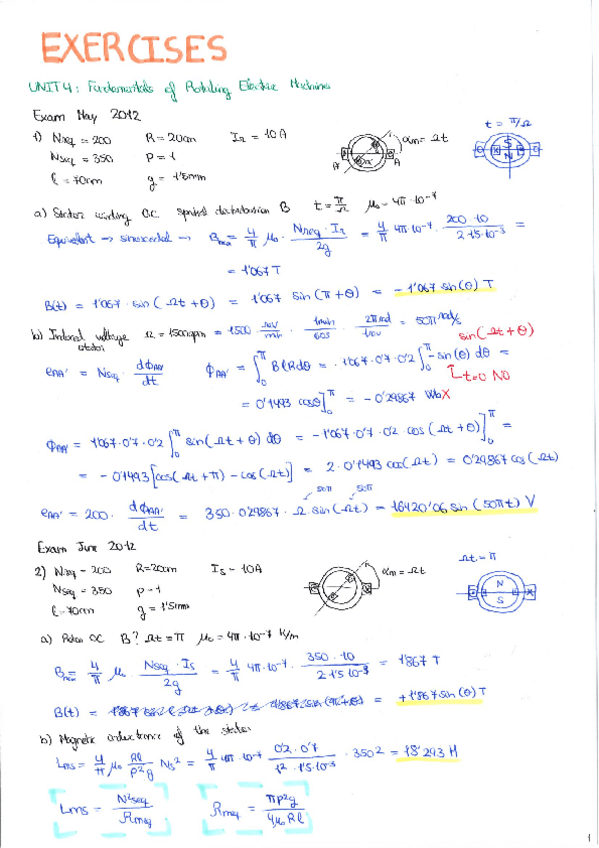 EXERCISES
UNIT 4: Fundamentals of Rotating Electric Machines
Exam May 2012
1) Nreq = 200 R = 20cm Ir = 10 A αm = Ωt t = π/Ω
Nseq = 350 P = 1 A' A
l = 70cm g = 1'5mm
a) Stator winding O.C. spatial distribution B t = π/Ω μ₀ = 4π·10⁻⁷
Equivalent → sinusoidal → Bmax = 4/π μ₀ · Nreq · Ir / 2g = 4/π 4π·10⁻⁷ · 200 · 10 / 2·1'5·10⁻³ =
= 1'067 T
B(t) = 1'067 · sin (Ωt + θ) = 1'067 sin (π + θ) = - 1'067 sin(θ) T
b) Induced voltage stator Ω = 1500rpm = 1500 rev/min · 1min/60s · 2π rad/1rev = 50π rad/s
sin(Ωt + θ)
eAA' = Nseq · dϕAA'/dt ϕAA' = ∫₀^π B l R dθ = - 1'067 · 0'7 · 0'2 ∫₀^π -sin(θ) dθ =
t=0 NO
= 0'1493 cosθ]₀^π = - 0'29867 Wb X
ϕAA' = 1'067 · 0'7 · 0'2 ∫₀^π sin(Ωt + θ) dθ = - 1'067 · 0'7 · 0'2 · cos (Ωt + θ)]₀^π =
= - 0'1493 [cos(Ωt + π) - cos(Ωt)] = 2 · 0'1493 cos(Ωt) = 0'29867 cos(Ωt)
50π 50π
eAA' = 200 · dϕAA'/dt = 350 · 0'29867 · Ω · sin(-Ωt) = 16420'06 sin (50πt) V
Exam June 2012
2) Nreq = 200 R = 20cm Is = 10A αm = Ωt Ωt = π
Nseq = 350 P = 1
l = 70cm g = 1'5mm
a) Rotor OC B? Ωt = π μ₀ = 4π·10⁻⁷ H/m
Bmax = 4/π μ₀ · Nseq · Is / 2g = 4/π 4π·10⁻⁷ · 350 · 10 / 2·1'5·10⁻³ = 1'867 T
B(t) = = +1'867 sin(θ) T
b) Magnetic inductance of the stator
Lms = 4/π μ₀ Rl/P²g Ns² = 4/π 4π·10⁻⁷ · 0'2 · 0'7 / 1² · 1'5·10⁻³ · 350² = 18'293 H
Lms = N²seq / Rmeq Rmeq = πp²g / 4μ₀Rl
1